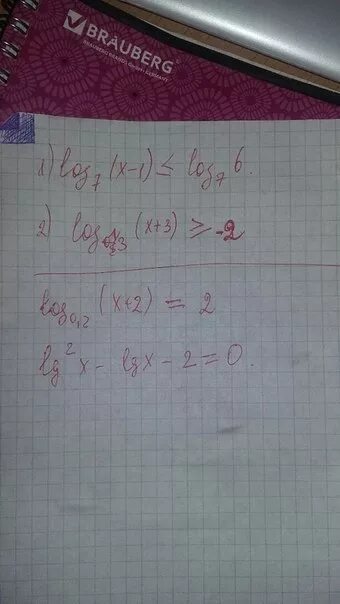 BRAUBERG
1) log₇(x-1) ≤ log₇ 6.
2) log (x+3) ≥ -2
log₀,₂ (x+2) = 2
lg²x - lgx - 2 = 0.